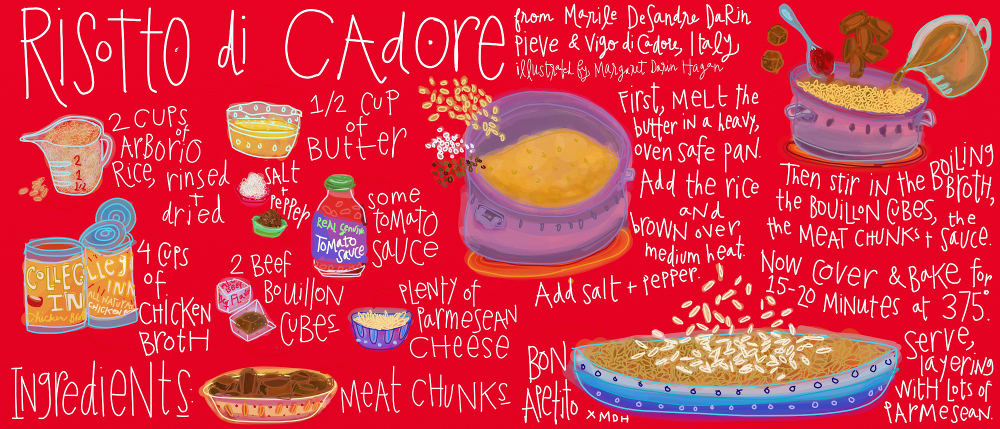 Risotto di Cadore
from Marile DeSandre DaRin
Pieve & Vigo di Cadore, Italy
illustratd by Margaret Darin Hagan
2 cups
of
Arborio
Rice, rinsed
+
dried
2
1
1/2
1/2 cup
of
Butter
Salt
+
Pepper
Real Genuine
Tomato
Sauce
some
tomato
sauce
Colleg
Inn
Chicken
Inn
All Natural
Chicken
4 cups
of
Chicken
Broth
2 Beef
Bouillon
Cubes
Beef
Plenty of
Parmesean
Cheese
Ingredients:
Meat Chunks
First, melt the
butter in a heavy,
oven safe pan.
Add the rice
and
brown over
medium heat.
Add salt + pepper.
Then stir in the boiling
broth,
the bouillon cubes,
the meat chunks + the sauce.
Now cover & bake for
15-20 minutes at 375°
Serve,
layering
with lots of
Parmesean.
Bon
Apetito
xMDH